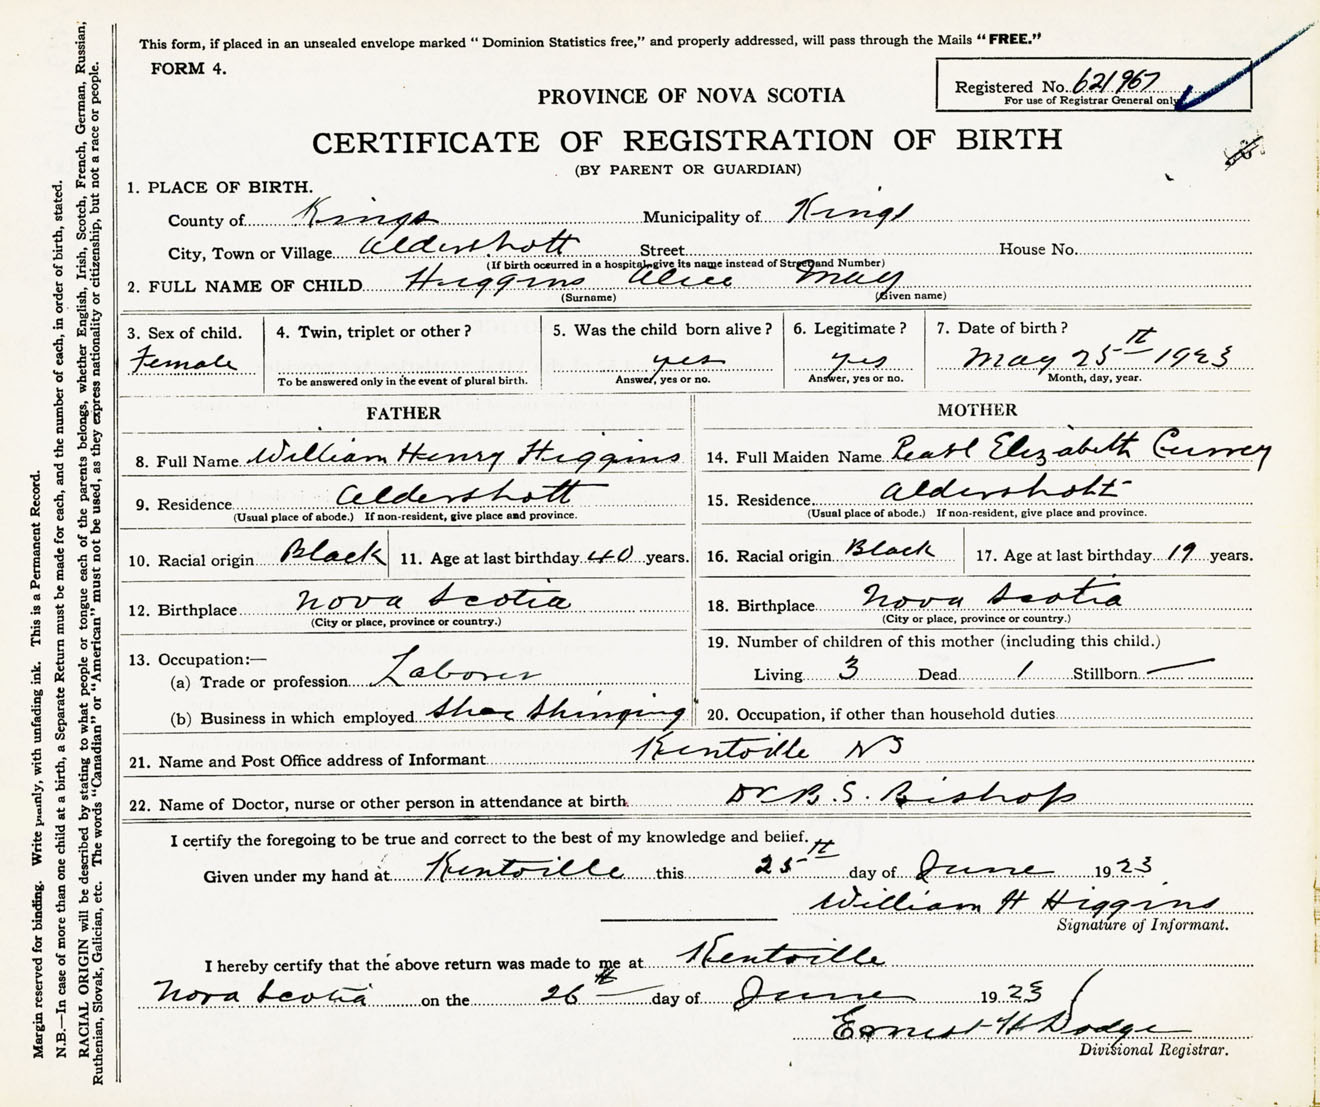 This form, if placed in an unsealed envelope marked “ Dominion Statistics free,” and properly addressed, will pass through the Mails “FREE.”
FORM 4.
Registered No. 621967
For use of Registrar General only
PROVINCE OF NOVA SCOTIA
CERTIFICATE OF REGISTRATION OF BIRTH
(BY PARENT OR GUARDIAN)
1. PLACE OF BIRTH.
County of Kings Municipality of Kings
City, Town or Village Aldershott Street House No.
(If birth occurred in a hospital, give its name instead of Street and Number)
2. FULL NAME OF CHILD Higgins Alice May
(Surname) (Given name)
3. Sex of child. 4. Twin, triplet or other? 5. Was the child born alive? 6. Legitimate? 7. Date of birth?
Female yes yes May 25th 1923
To be answered only in the event of plural birth. Answer, yes or no. Answer, yes or no. Month, day, year.
FATHER MOTHER
8. Full Name William Henry Higgins 14. Full Maiden Name Pearl Elizabeth Currey
9. Residence Aldershott 15. Residence Aldershott
(Usual place of abode.) If non-resident, give place and province. (Usual place of abode.) If non-resident, give place and province.
10. Racial origin Black 11. Age at last birthday 40 years. 16. Racial origin Black 17. Age at last birthday 19 years.
12. Birthplace Nova Scotia 18. Birthplace Nova Scotia
(City or place, province or country.) (City or place, province or country.)
13. Occupation:— 19. Number of children of this mother (including this child.)
(a) Trade or profession Laborer Living 3 Dead 1 Stillborn —
(b) Business in which employed Shoe Shinging 20. Occupation, if other than household duties
21. Name and Post Office address of Informant Kentville NS
22. Name of Doctor, nurse or other person in attendance at birth. Dr B. S. Bishop
I certify the foregoing to be true and correct to the best of my knowledge and belief.
Given under my hand at Kentville this 25th day of June 1923
William H Higgins
Signature of Informant.
I hereby certify that the above return was made to me at Kentville
Nova Scotia on the 26th day of June 1923
Ernest H Dodge
Divisional Registrar.
Margin reserved for binding. Write plainly, with unfading ink. This is a Permanent Record.
N.B.—In case of more than one child at a birth, a Separate Return must be made for each, and the number of each, in order of birth, stated.
RACIAL ORIGIN will be described by stating to what people or tongue each of the parents belongs, whether English, Irish, Scotch, French, German, Russian,
Ruthenian, Slovak, Galician, etc. The words “Canadian” or “American” must not be used, as they express nationality or citizenship, but not a race or people.